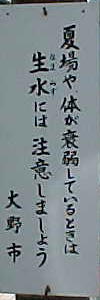 夏場や体が衰弱しているときは
生水には注意しましょう
大野市